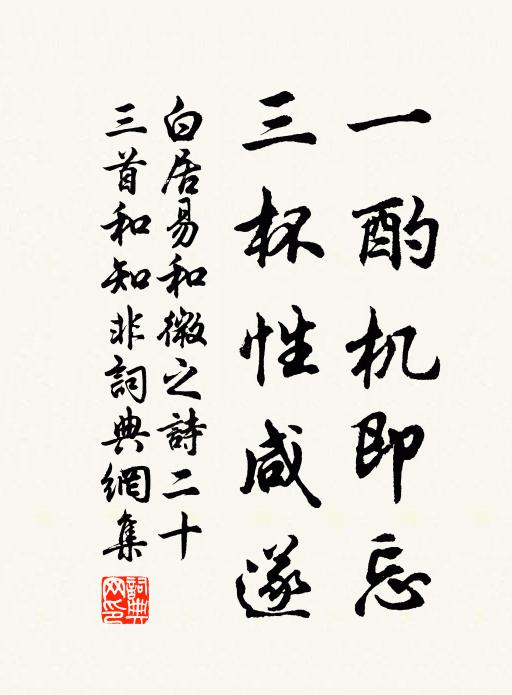 一酌机即忘
三杯性咸遂
白居易和微之詩二十
三首和知非詞典網集
詞典网印